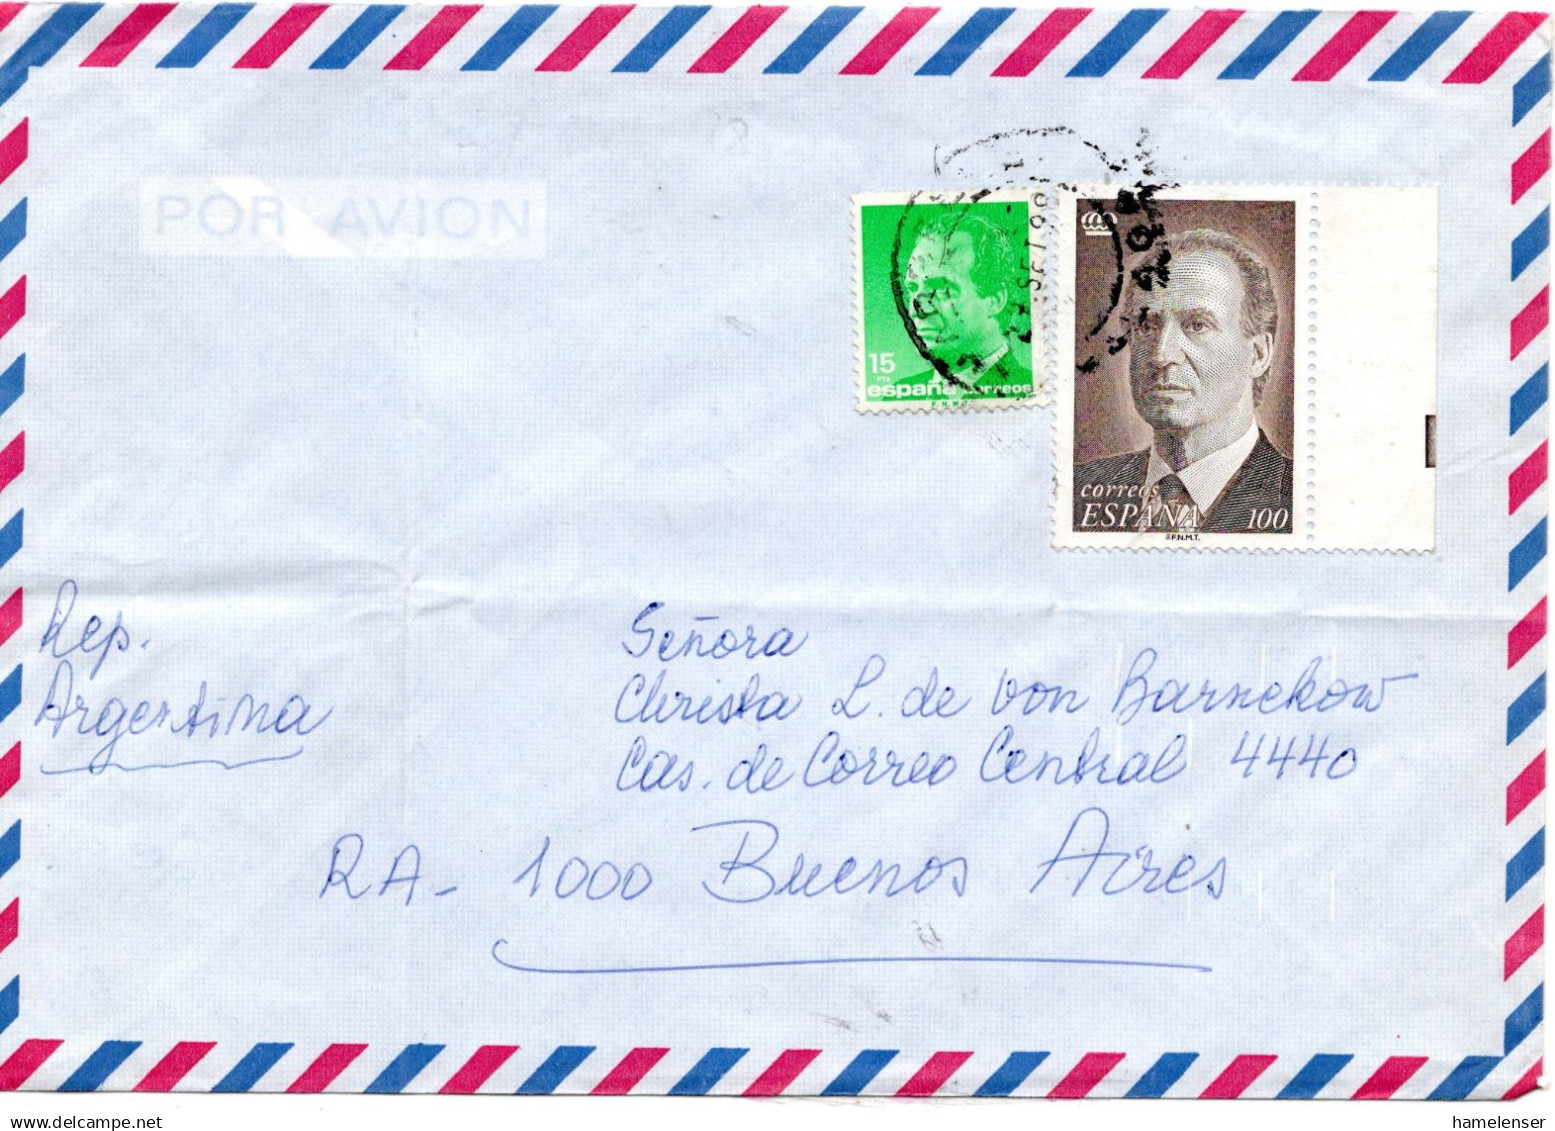 POR AVION
15
PTA
españa correos
F.N.M.T.
correos
ESPAÑA 100
F.N.M.T.
Rep.
Argentina
Señora
Christa L. de von Barnekow
Cas. de Correo Central 4440
RA - 1000 Buenos Aires
hamelenser